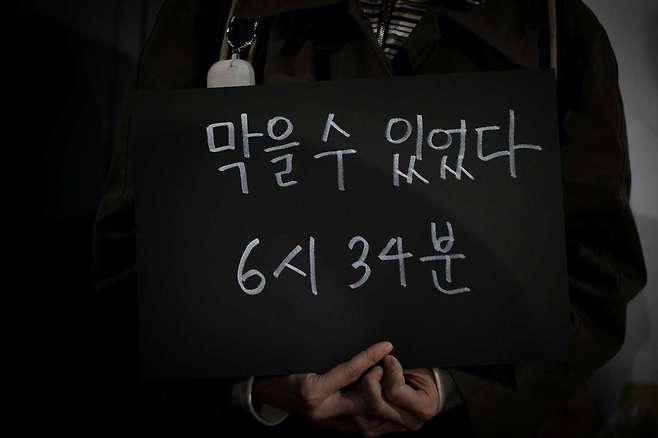 막을수 있었다
6시 34분